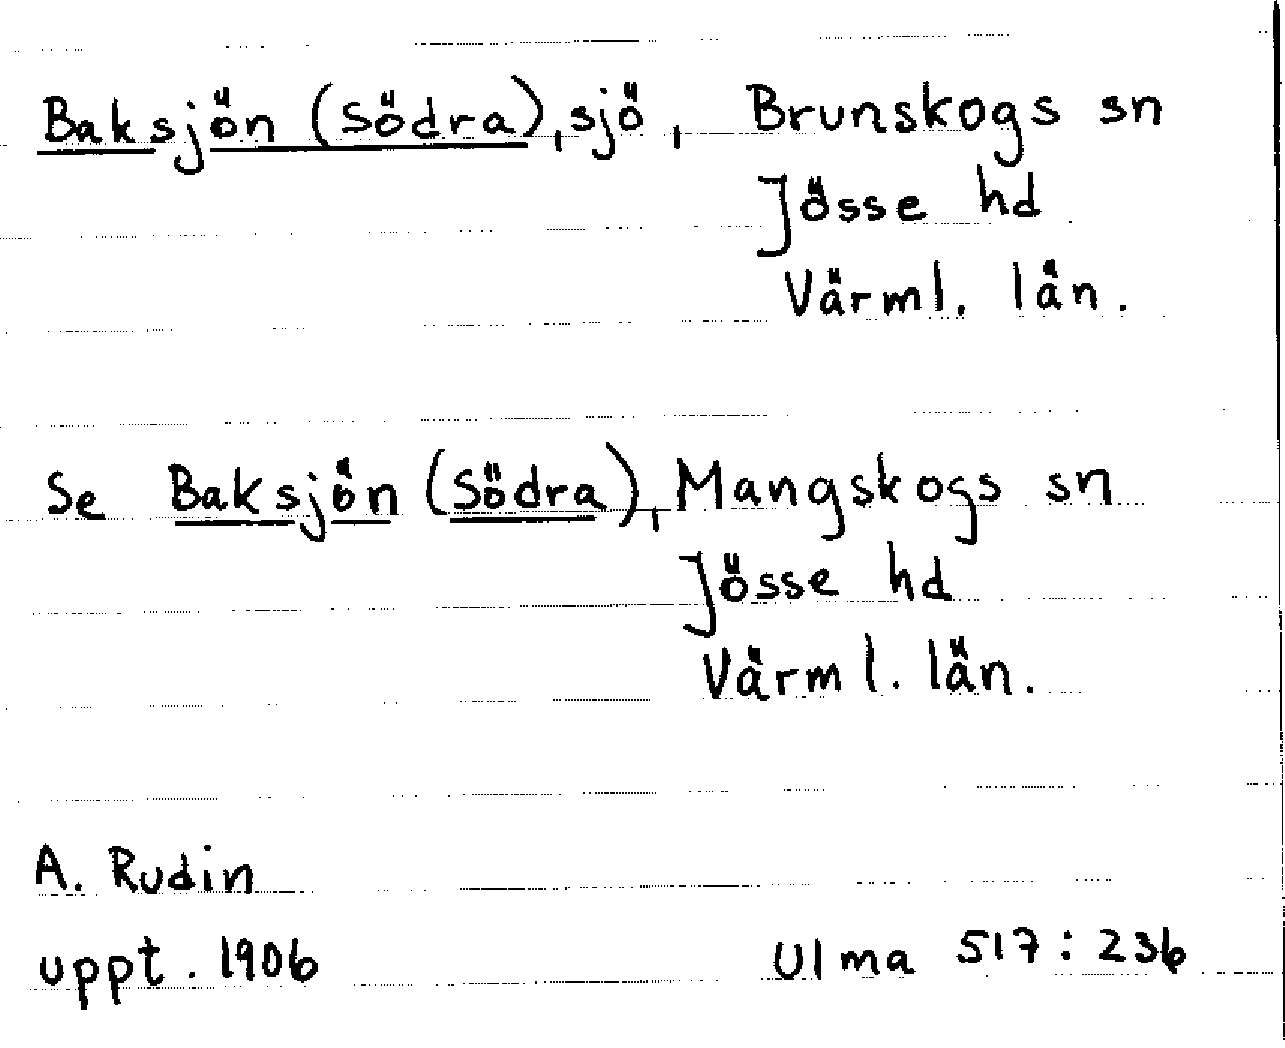 Baksjön (Södra), sjö, Brunskogs sn
Jösse hd
Värml. län.
Se Baksjön (Södra), Mangskogs sn
Jösse hd
Värml. län.
A. Rudin
uppt. 1906 Ulma 517:236